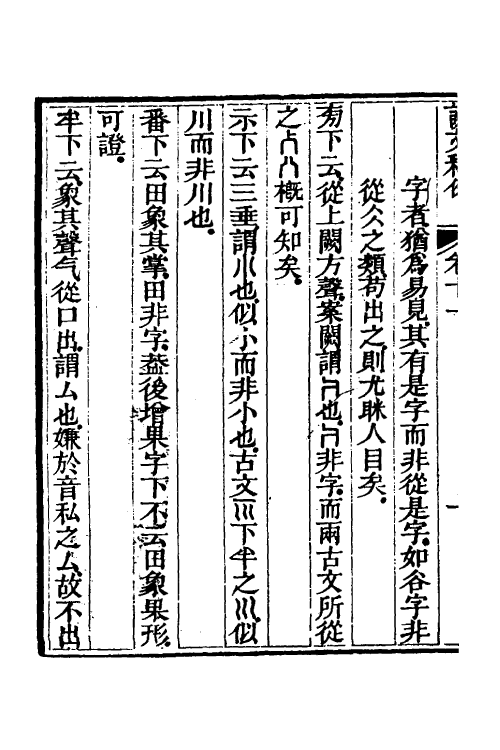 字者猶爲易見其有是字而非從是字如谷字非
從仌之類苟出之則尤眯人目矣
㫄下云從上闕方聲案闕謂冂也冂非字而兩古文所從
之八槪可知矣
示下云三垂謂川也似小而非小也古文下之川似
川而非川也
番下云田象其掌田非字葢後增果字下不云田象果形
可證
牟下云象其聲气從口出謂厶也嫌於音私之厶故不出